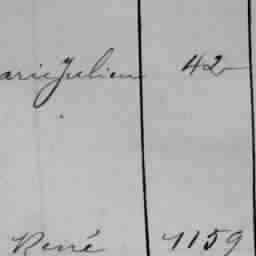 arie Julien 42
René 1159